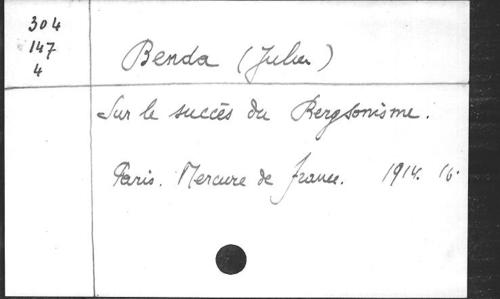 304
147
4
Benda (Julien)
Sur le succès du Bergsonisme.
Paris. Mercure de France. 1914. 16.